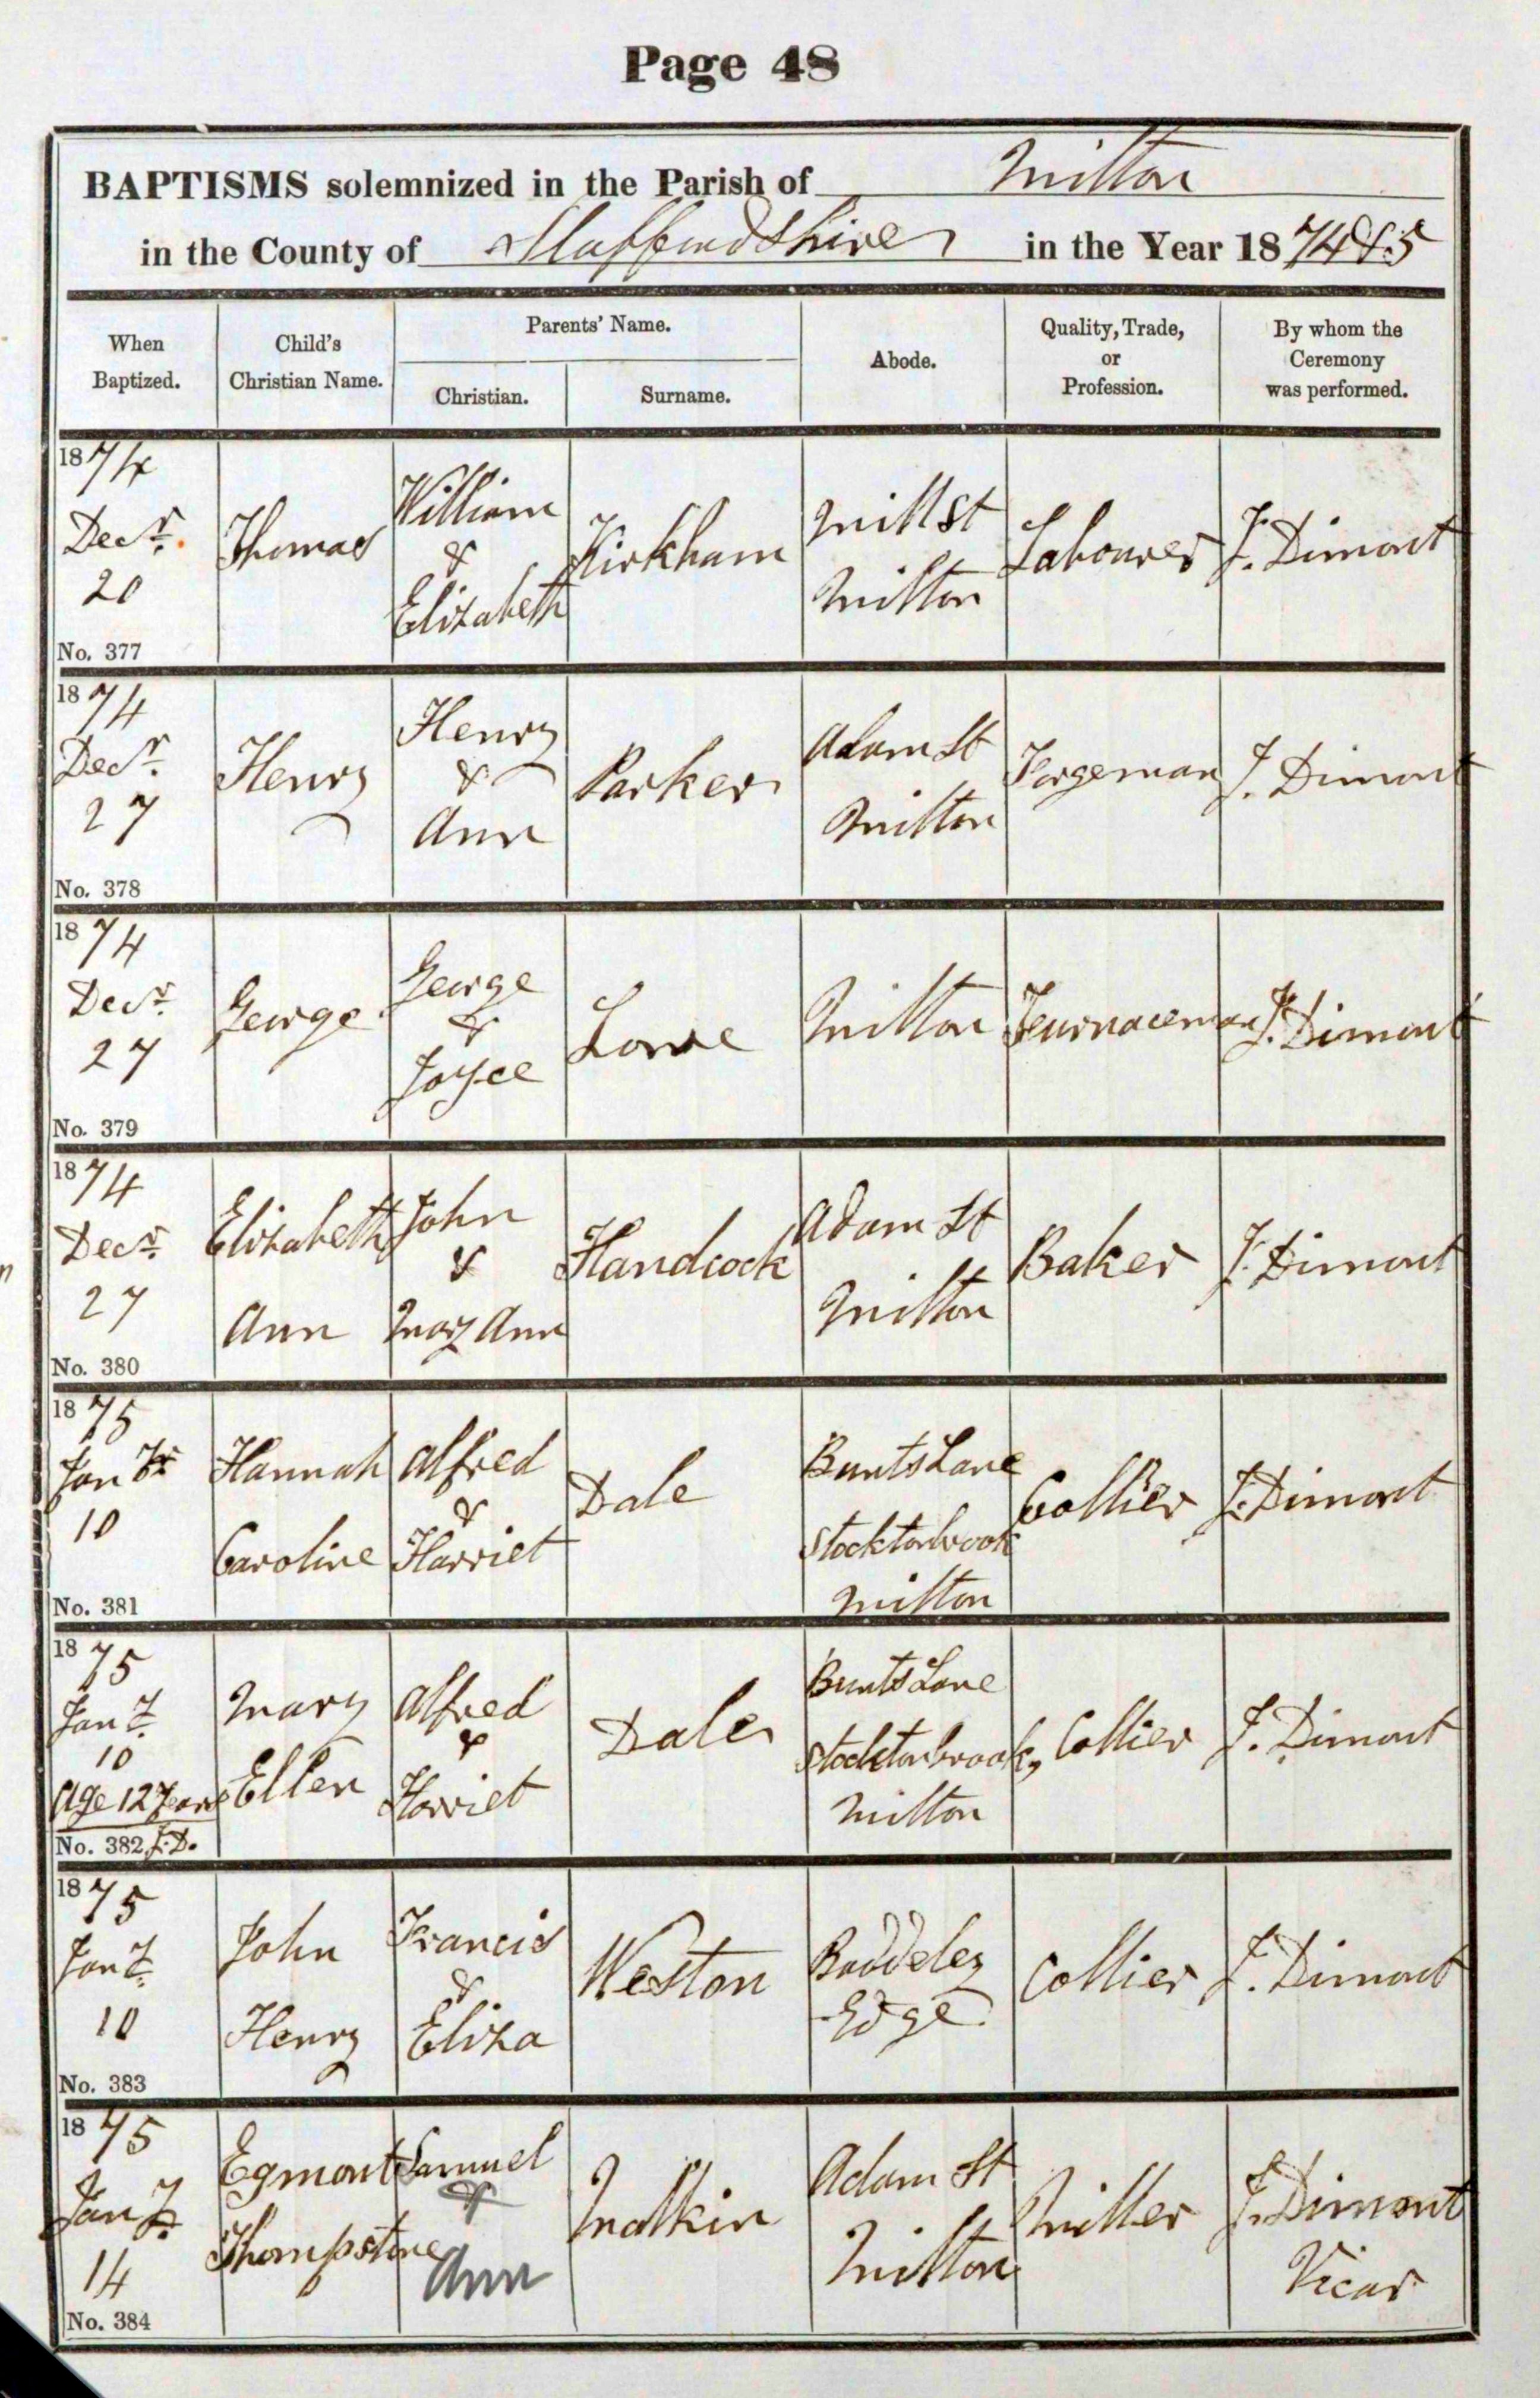 Page 48
BAPTISMS solemnized in the Parish of Milton
in the County of Staffordshire in the Year 1874&5
When Baptized.
Child's Christian Name.
Parents' Name.
Christian.
Surname.
Abode.
Quality, Trade, or Profession.
By whom the Ceremony was performed.
1874
Decr.
20
No. 377
Thomas
William
&
Elizabeth
Kirkham
Mill St
Milton
Labourer
J. Dimont
1874
Decr.
27
No. 378
Henry
Henry
&
Ann
Parker
Adam St
Milton
Forgeman
J. Dimont
1874
Decr.
27
No. 379
George
George
&
Joyce
Lowe
Milton
Furnaceman
J. Dimont
1874
Decr.
27
No. 380
Elizabeth
Ann
John
&
Mary Ann
Handcock
Adam St
Milton
Baker
J. Dimont
1875
Jany
10
No. 381
Hannah
Caroline
Alfred
&
Harriet
Dale
Bunts Lane
Stocktonbrook
Milton
Collier
J. Dimont
1875
Jany
10
Age 12 Years
No. 382 J.D.
Mary
Ellen
Alfred
&
Harriet
Dale
Bunts Lane
Stocktonbrook,
Milton
Collier
J. Dimont
1875
Jany.
10
No. 383
John
Henry
Francis
&
Eliza
Weston
Baddeley
Edge
Collier
J. Dimont
1875
Jany.
14
No. 384
Egmont
Thompstone
Samuel
&
Ann
Malkin
Adam St
Milton
Miller
J. Dimont
Vicar